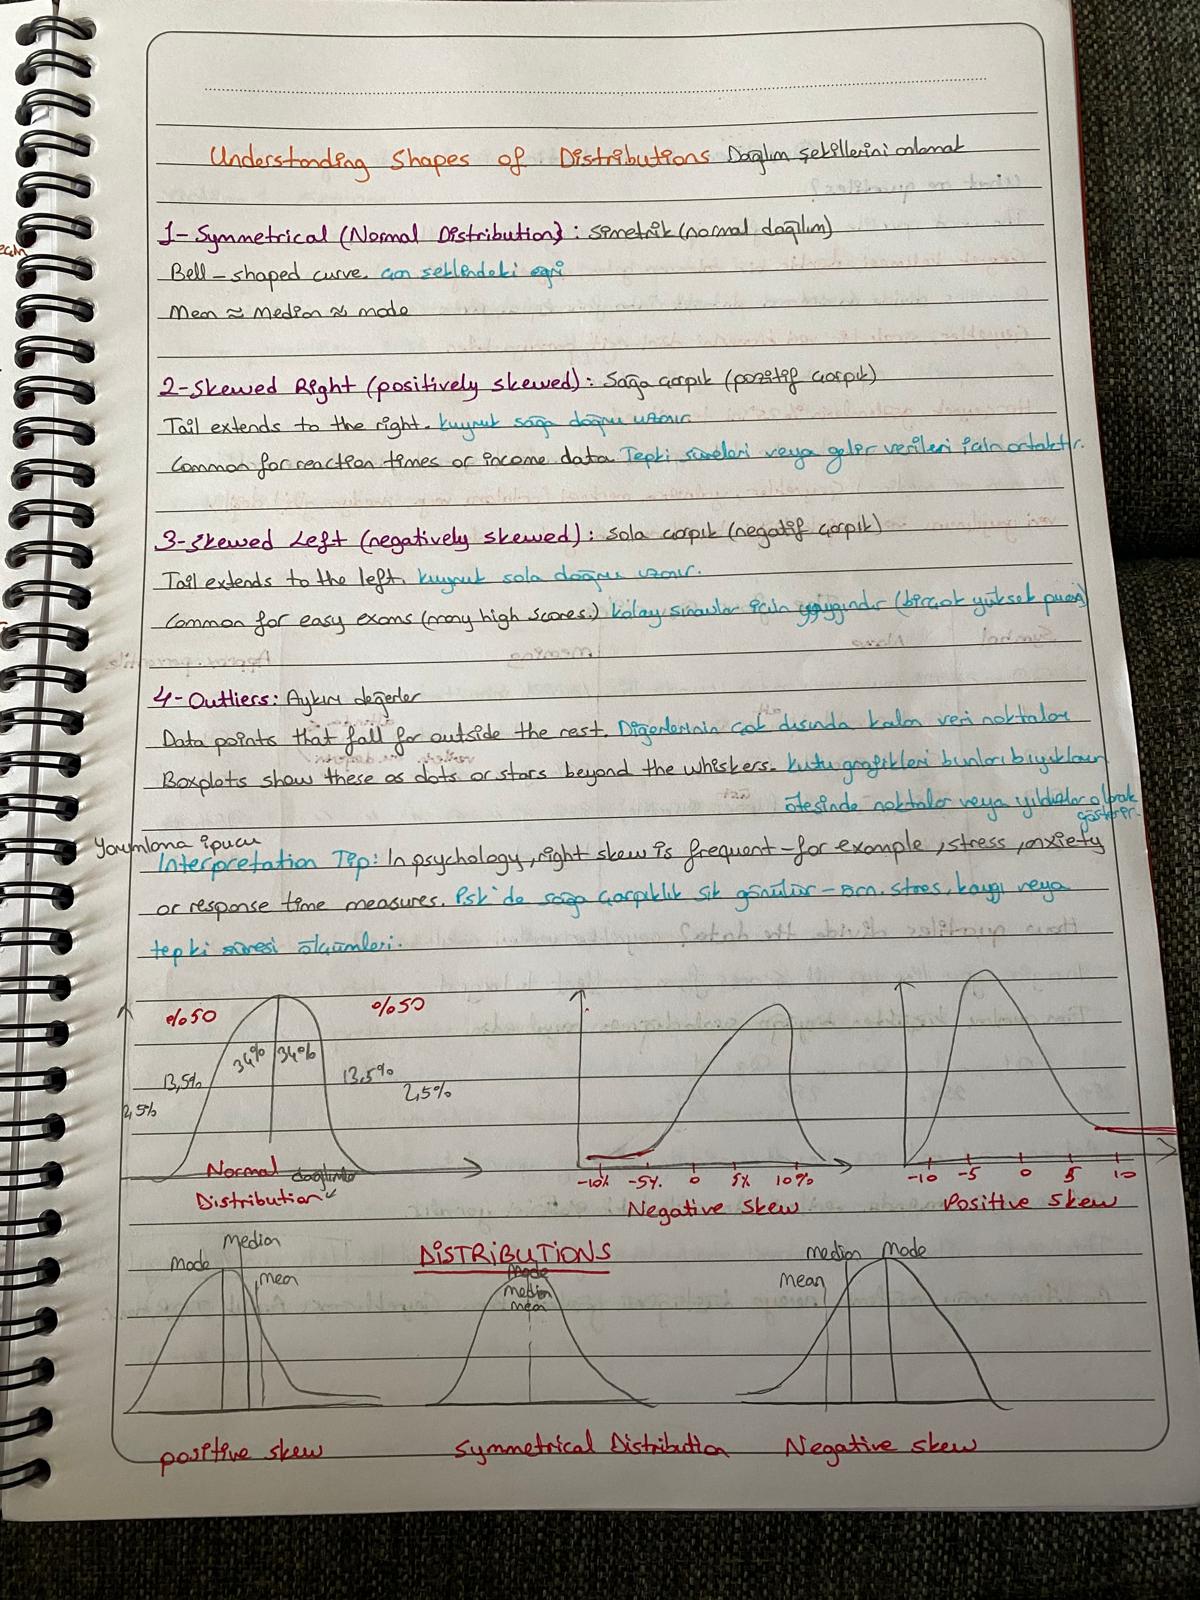 Understanding Shapes of Distributions Dağılım şekillerini anlamak
1- Symmetrical (Normal Distribution): Simetrik (normal dağılım)
Bell-shaped curve. Çan şeklindeki eğri
Mean ≈ Median ≈ mode
2-Skewed Right (positively skewed): Sağa çarpık (pozitif çarpık)
Tail extends to the right. kuyruk sağa doğru uzanır.
Common for reaction times or income data Tepki süreleri veya gelir verileri için ortaktır.
3-Skewed Left (negatively skewed): Sola çarpık (negatif çarpık)
Tail extends to the left. kuyruk sola doğru uzanır.
Common for easy exams (many high scores.) kolay sınavlar için yaygındır (birçok yüksek puan)
4-Outliers: Aykırı değerler
Data points that fall far outside the rest. Diğerlerinin çok dışında kalan veri noktaları
Boxplots show these as dots or stars beyond the whiskers. kutu grafikleri bunları bıyıkların
ötesinde noktalar veya yıldızlar olarak
gösterir.
Yorumlama ipucu
Interpretation Tip: In psychology, right skew is frequent-for example, stress, anxiety
or response time measures. Psk'de sağa çarpıklık sık görülür - örn. stres, kaygı veya
tepki süresi ölçümleri.
%50 %50
34% 34%
13,5% 13,5% 2,5%
2,5%
Normal dağılımı
Distribution
-10% -5% 0 5% 10%
Negative skew
-10 -5 0 5 10
Positive skew
DISTRIBUTIONS
Mode Median mean
Mode
median
mean
mean median Mode
positive skew Symmetrical Distribution Negative skew